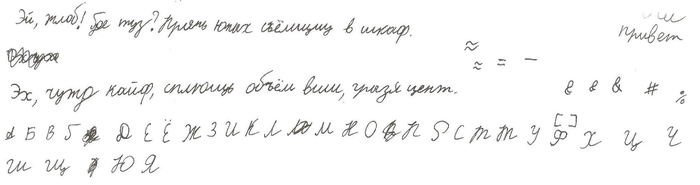 Эй, жлоб! Где туз? Прячь юных съёмщиц в шкаф.
привет
≈
≈ = –
Эх, чужд кайф, сплющь объём вши, грызя цент.
& & & # %
А Б В Г Д Е Ё Ж З И К Л М Н О П Р С Т Т У [Ф] Х Ц Ч
Ш Щ Ю Я